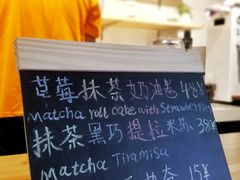 草莓抹茶奶油卷 48¥
matcha roll cake with Strawberries
抹茶黑巧提拉米苏 38¥
Matcha Tiramisu
15¥